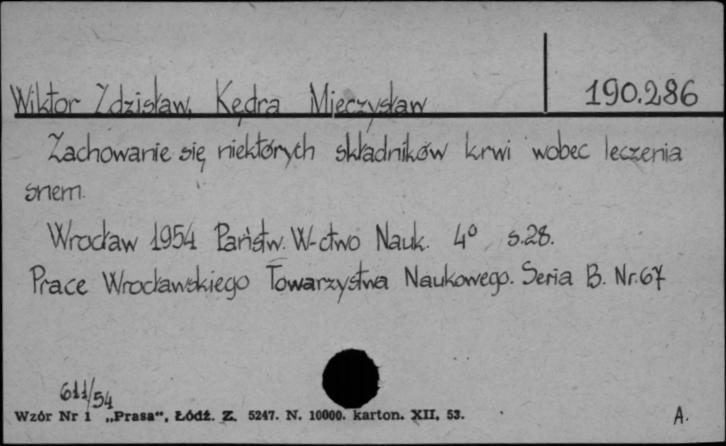 Wiktor Zdzisław, Kędra Mieczysław 190.286
Zachowanie się niektórych składników krwi wobec leczenia
snem.
Wrocław 1954 Państw. W-ctwo Nauk. 4° s.28.
Prace Wrocławskiego Towarzystwa Naukowego. Seria B. Nr.67
611/54
Wzór Nr 1 „Prasa“, Łódź. Z. 5247. N. 10000. karton. XII, 53. A.